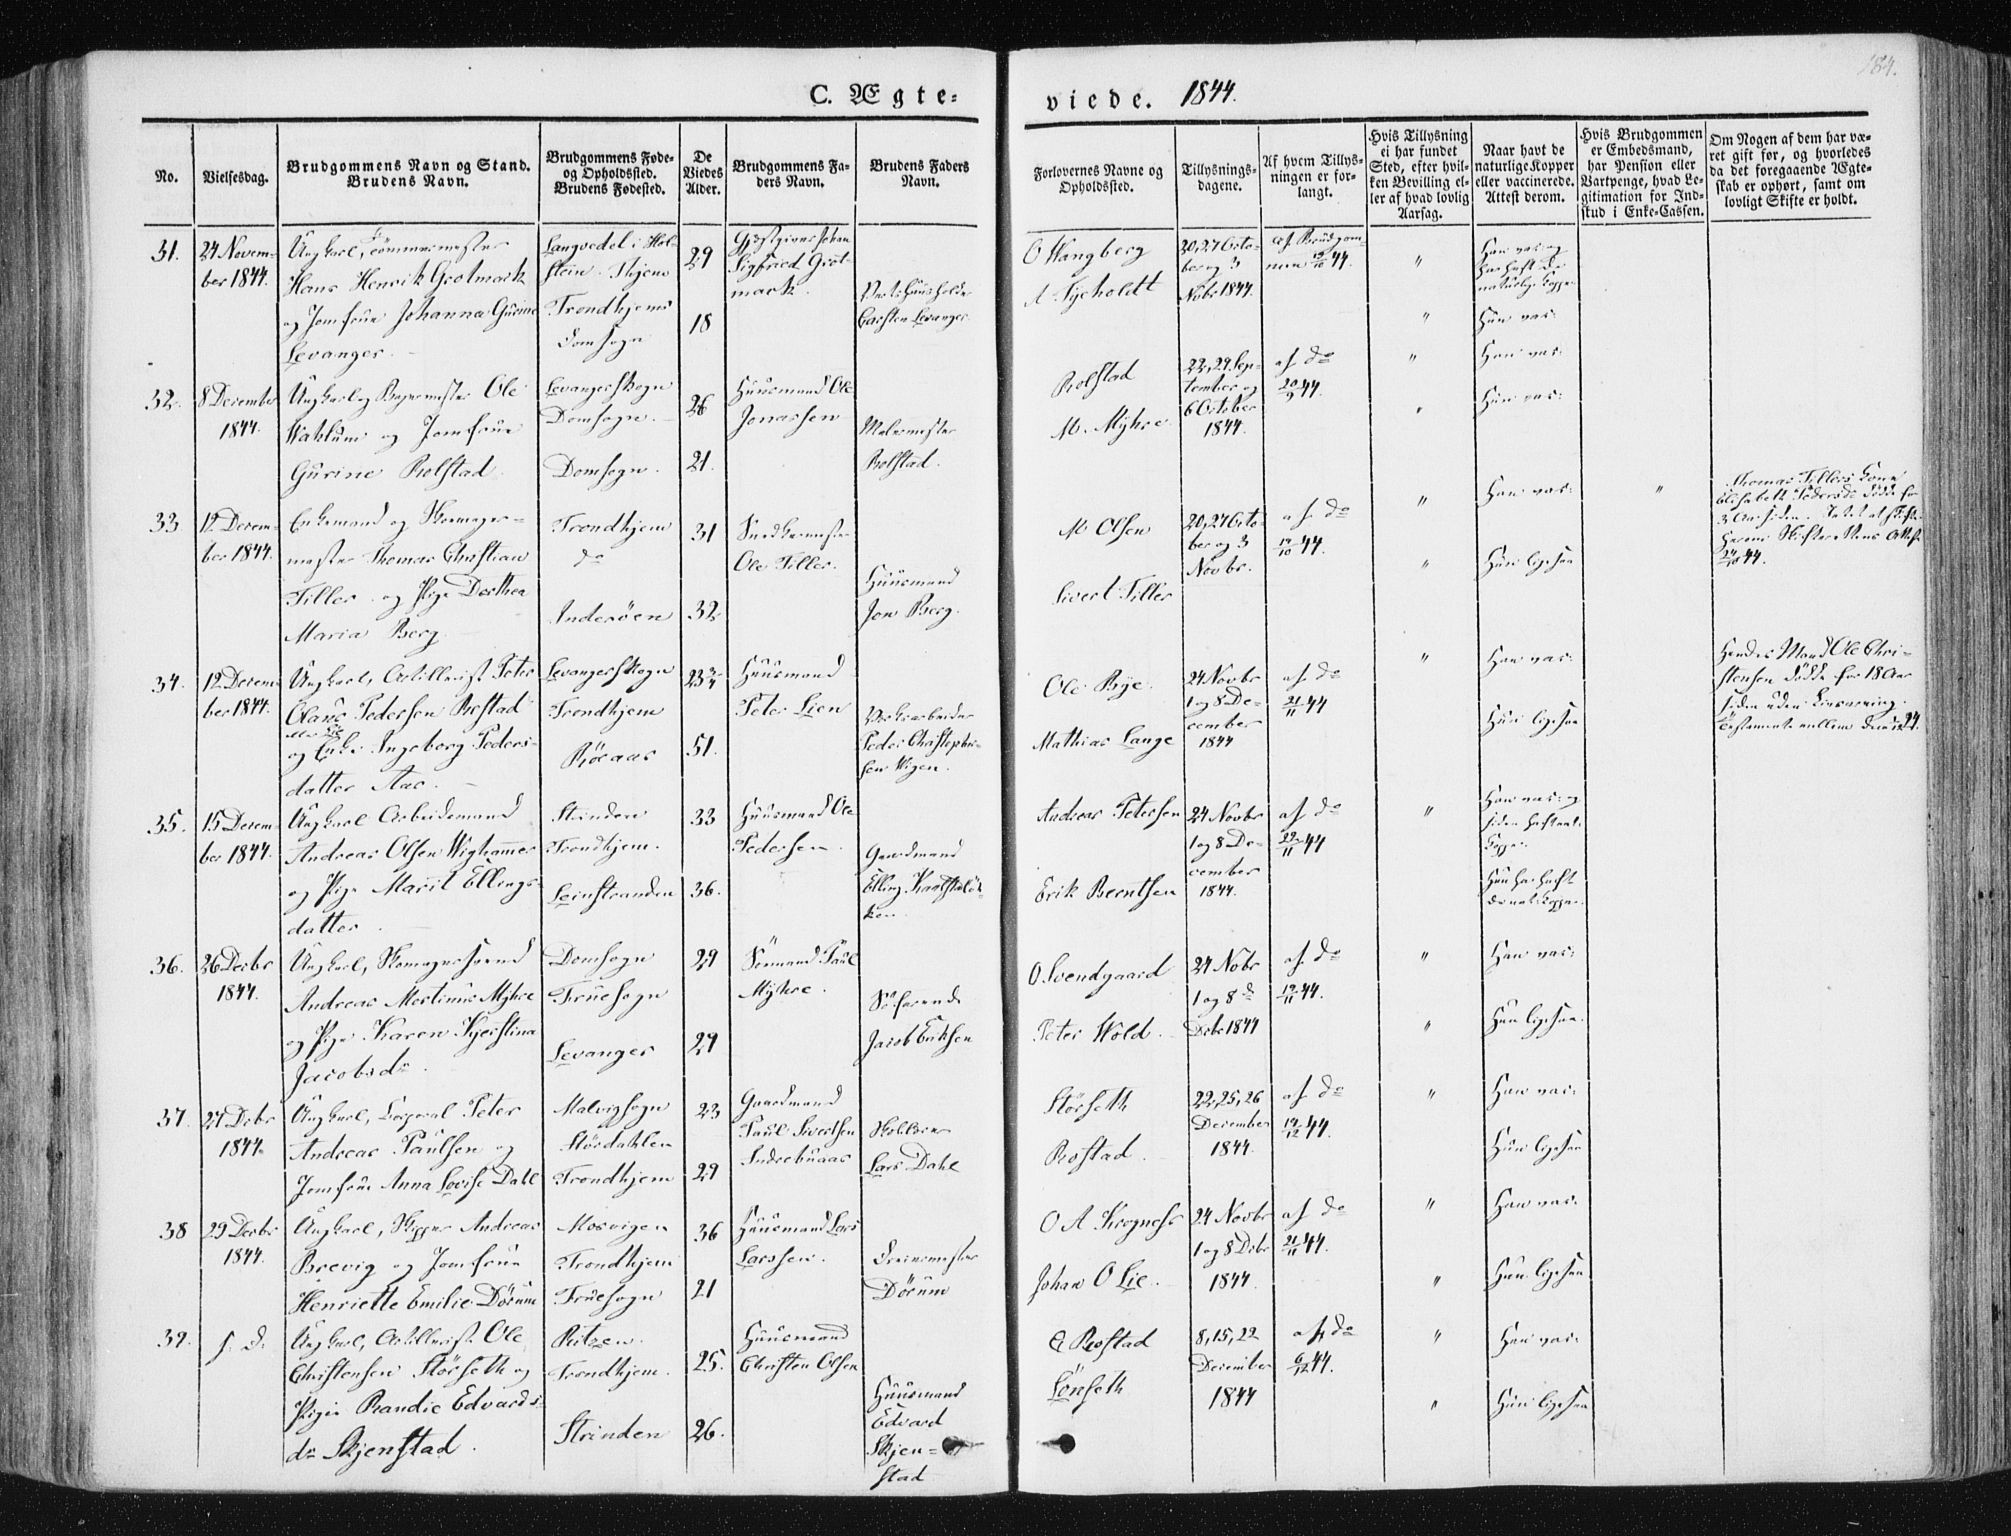 184.
C. Ægte-
viede. 1844.
No.
Vielsesdag.
Brudgommens Navn og Stand.
Brudens Navn.
Brudgommens Føde-
og Opholdssted.
Brudens Fødested.
De
Viedes
Alder.
Brudgommens Fa-
ders Navn.
Brudens Faders
Navn.
Forlovernes Navne og
Opholdssted.
Tillysnings-
dagene.
Af hvem Tillys-
ningen er for-
langt.
Hvis Tillysning
ei har fundet
Sted, efter hvil-
ken Bevilling el-
ler af hvad lovlig
Aarsag.
Naar havt de
naturlige Kopper
eller vaccinerede.
Attest derom.
Hvis Brudgommen
er Embedsmand,
har Pension eller
Vartpenge, hvad Le-
gitimation for Ind-
skud i Enke-Cassen.
Om Nogen af dem har væ-
ret gift før, og hvorledes
da det foregaaende Ægte-
skab er ophørt, samt om
lovligt Skifte er holdt.
31.
24 Novem-
ber 1844.
Ungkarl, Tømmermester
Hans Henrik Grotmack
og Jomfrue Johanna Gurine
Levanger.
Langvedel i Hol-
stein. Thjem
Trondhjems
Domsogn
29
18
Gjæstgiver Johan
Sigfried Grot-
mack.
Vertshuusholder
Carsten Levanger.
O Wangberg
A Tycholdt
20, 27 Octo-
ber og 3
Novbr 1844.
af Brudgom-
men 19/10 44.
"
"
Han vac: og
har haft de
naturlige Kopper
Hun vac:
32.
8 December
1844.
Ungkarl og Bagermester Ole
Wahlum og Jomfrue
Gurine Rolstad.
Levanger Skogn
Domsogn.
Domsogn.
26
21.
Huusmand Ole
Jonassen
Malermester
Rolstad.
Rolstad
M. Myhre
22, 29 Sep-
tember og
6 October
1844.
af do
20/9 44.
"
"
Han vac:
Hun vac:
33.
12 Decem-
ber 1844.
Enkemand og Skomager-
mester Thomas Christian
Tiller og Pige Dorthea
Maria Berg.
Trondhjem
do
Inderöen
31
32
Snedkermester
Ole Tiller.
Huusmand
Jon Berg.
M Olsen
Sivert Tiller
20, 27 Octo-
ber og 3
Novbr.
af do
19/10 44.
"
"
Han vac:
Hun ligesaa
"
Thomas Tillers Kone
Elisabeth Pedersd. döde for
3 Aar siden.
44.
34.
12 Decem-
ber 1844.
Ungkarl, Artillerist Peter
Olaus Pedersen Rostad
eller Lie
og Enke Ingeborg Peders-
datter Aas.
Levanger Skogn
Trondhjem
Röraas
23 3/4
51.
Huusmand
Peter Lien
Verksarbeider
Peder Christopher-
sen Wigen.
Ole Bye.
Mathias Lange
24 Novbr
1 og 8 De-
cember
1844
af do
21/11 44
"
Han vac:
Hun ligesaa
Hendes Mand Ole Chri-
stensen döde for 18 Aar
siden uden
35.
15 Decem-
ber 1844.
Ungkarl Arbeidsmand
Andreas Olsen Wighammer
og Pige Marit Ellings-
datter.
Strinden
Trondhjem.
Leinstranden
33
36.
Huusmand Ole
Pedersen
Gaardmand
Elling
Andreas Petersen
Erik Berntsen
24 Novbr
1 og 8 De-
cember
1844.
af do
22/11 44
"
Han vac: og
siden haft nat.
Kopper.
Hun har haft
de nat. Kopper.
36.
26 Decbr
1844.
Ungkarl, Skomagersvend
Andreas Martinus Myhre
og Pige Karen Kjerstina
Jacobsdr.
Domsogn
Fruesogn
Levanger
29
29
Sömand Paul
Myhre.
Söfarende
Jacob Eriksen
O. Svendgaard
Peter Wold.
24 Nobr
1 og 8 d
Decbr 1844
af do
19/11 44.
"
"
Han vac:
Hun ligesaa.
37.
27 Decbr
1844.
Ungkarl, Corporal Peter
Andreas Paulsen og
Jomfrue Anna Lovise Dahl
Malvigsogn
Stördahlen
Trondhjem
23
29
Gaardmand
Paul Sivertsen
Lars Dahl
Störseth
Rostad.
22, 25, 26
December
1844.
af do
19/12 44.
"
Han vac:
Hun ligesaa
38
29 Decbr
1844.
Ungkarl, Skipper Andreas
Brevig og Jomfrue
Henriette Emilie Dörum
Mosvigen
Trondhjem
Fruesogn
36
21
Huusmand Lars
Larssen.
Dreiermester
Dörum
O A Krogness
Johan O Lie.
24 Novbr
1 og 8 Decbr
1844.
af do
21/11 44.
"
"
Han vac:
Hun ligesaa
39.
s. d.
Ungkarl, Artillerist Ole
Christensen Störseth og
Pige Randie Edvards-
dr Skjenstad.
Ritzen.
Trondhjem.
Strinden
25.
26.
Huusmand
Christen Olsen
Huusmand
Edvard
Skjen-
stad
Rostad
Lönseth
8, 15, 22
December
1844
af do
6/12 44.
"
"
Han vac:
Hun ligesaa